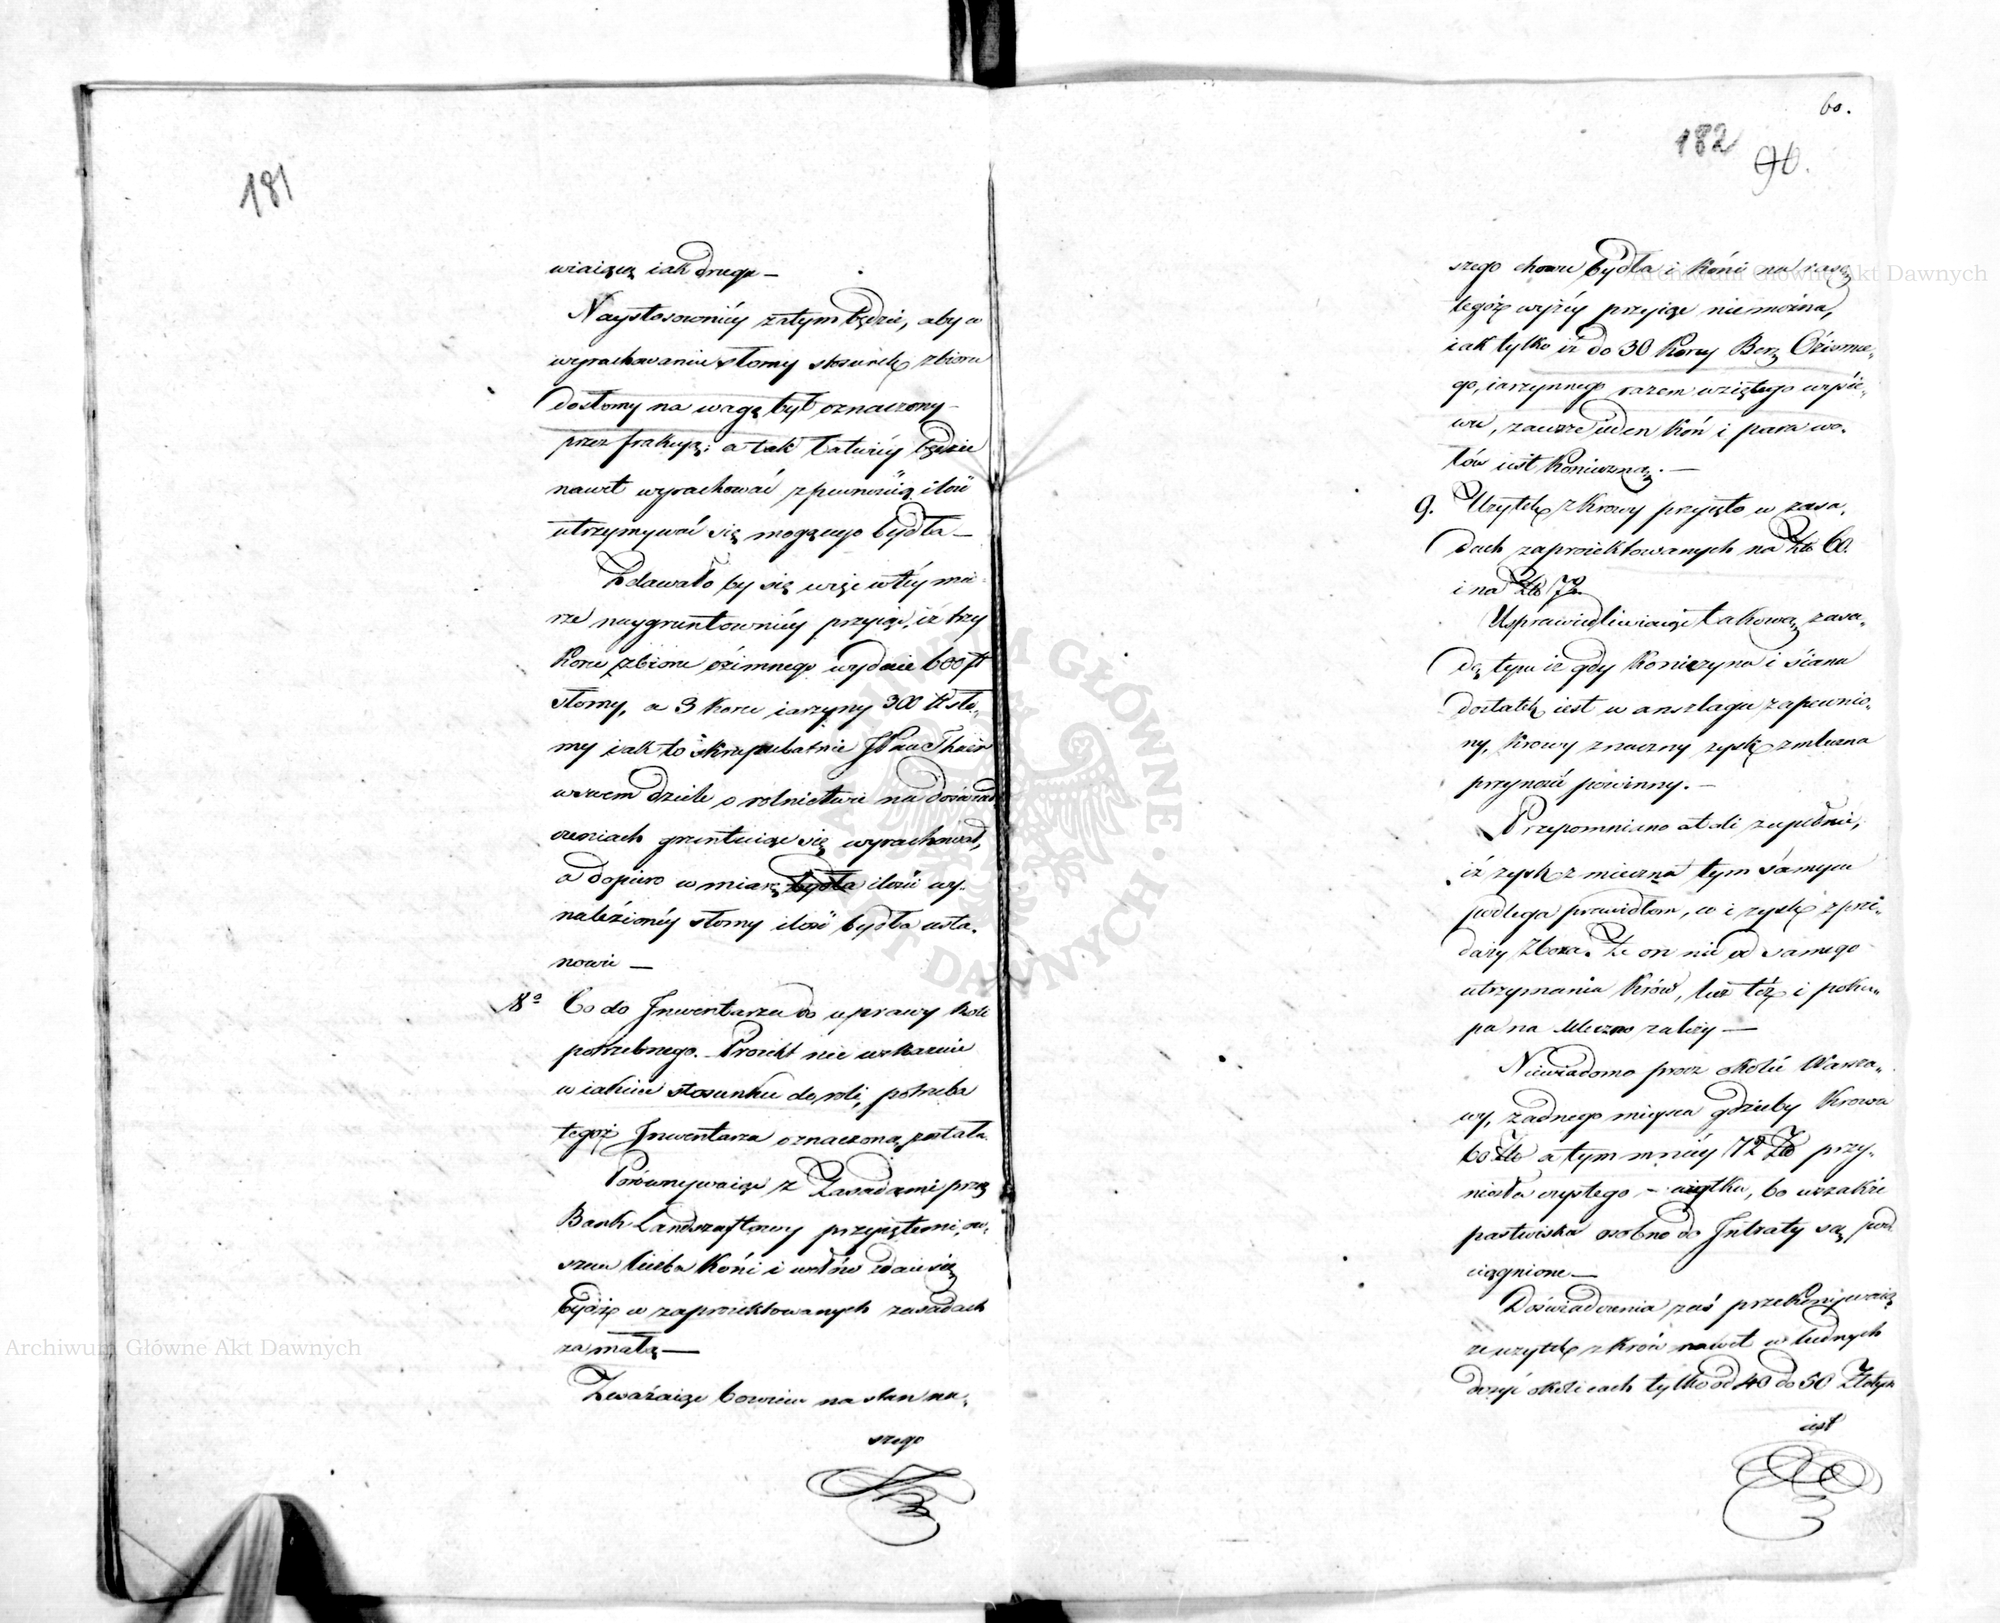 181
wiaiącą iak druga —
Naystosowniey zatym będzie, aby w
wyrachowaniu słomy stosunek zbioru
do słomy na wagę był oznaczony
przez frakcyą: a tak łatwiéy będzie
nawet wyrachować z pewnością ilość
utrzymywać się mogącego bydła —
Zdawało by się więc w téy mie-
rze naygruntowniéy przyiąć, iż trzy
korce zbioru oźimnego wydaie 600 ft
słomy, a 3 korce iarzyny 300 ft sło-
my iak to skrupulatnie JPan Thaer
w swem dziele o rolnictwie na doświad
czeniach gruntuiąc się wyrachował,
a dopiero w miarę ilości wy-
naleźionéy słomy ilość bydła usta-
nowić —
8º Co do Inwentarza do uprawy roli
potrzebnego. Proiekt nie wskazuie
w iakim stosunku do roli, potrzeba
tegoż Inwentarza oznaczoną została.
Porównywaiąc z Zasadami przez
Bank Landszaftowy przyiętemi, ow-
szem liczba koni i wołów zdaie się
bydź w zaproiektowanych zasadach
za małą —
Zważaiąc bowiem na stan na-
szego
60.
182
90.
szego chowu bydła i koni na rasę
tegóż wyżéy przyiąć nie można,
iak tylko iż do 30 korcy Berl. Oźimne-
go, iarzynnego razem wziętego wysie-
wu, zawsze ieden koń i para wo-
łów iest konieczną. —
9. Użytek z krowy przyięto w zasa-
dach zaproiektowanych na Złt 60.
i na Złt 72
Usprawiedliwiaiąc takową zasa-
dę tym iż gdy koniczyna i siana
dostatek iest w anszlagu zapewnio-
ny, krowy znaczny zysk z mleczna
przynosić powinny. —
Przepomniano atoli zupełnie,
iż zysk z mleczna tym samym
podlega prawidłom, co i zysk z prze-
daży zboża. Że on nie od samego
utrzymania krów, lecz téż i poku-
pu na mleczno zależy —
Niewiadomo procz okolic Warsza-
wy, żadnego mieysca gdzieby krowa
60 Złt a tym mniéy 72 Złt przy-
niosła czystego — użytku, bo wszakże
pastwiska osobno do Intraty są pod
ciągnione —
Doświadczenia zaś przekonywaią
że użytek z krów nawet w ludnych
dosyć okolicach tylko od 40 do 50 Złotych
iest